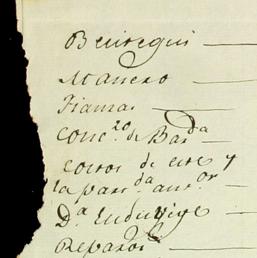 Beuregui
Manero
Fianzas
Conc.ro de Bar.da
costos de este y
la par.da ant.or
D.a Eduvige
Reparos